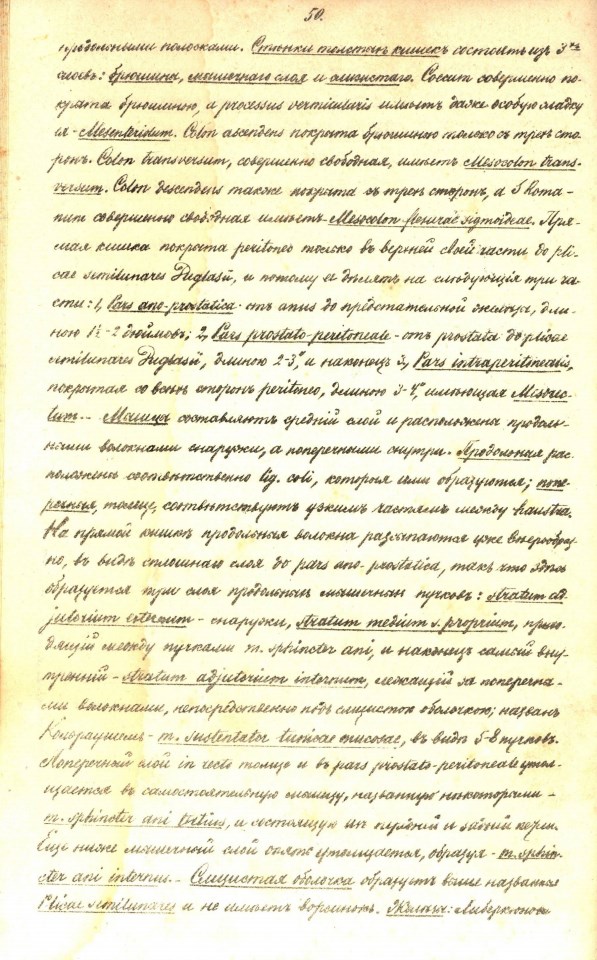 50.
продольными полосками. Стѣнки толстыхъ кишекъ состоятъ изъ 3хъ
слоевъ: брюшина, мышечнаго слоя и слизистаго. Coecum совершенно по-
крыта брюшиною, а processus vermicularis имѣетъ даже особую складку
ея - Mesenteridum. Colon ascendens покрыта брюшиною только съ трехъ сто-
ронъ. Colon transversum, совершенно свободная, имѣетъ Mesocolon trans-
versum. Colon descendens также покрыта съ трехъ сторонъ, а S Roma-
num совершенно свободная имѣетъ Mesocolon flexurae sigmoideae. Пря-
мая кишка покрыта peritoneo только въ верхней своей части до pli-
cae semilunares Duglasii, и потому ее дѣлятъ на слѣдующія три ча-
сти: 1, Pars ano-prostatica - отъ anus до предстательной железы, дли-
ною 1½-2 дюймовъ; 2, Pars prostato-peritoneale - отъ prostata до plicae
semilunares Duglasii, длиною 2-3", и наконецъ 3, Pars intraperitonealis,
покрытая со всѣхъ сторонъ peritoneo, длиною 3-4", имѣющая Misorec-
tum. - Мышцы составляютъ средній слой и расположены продоль-
ными волокнами снаружи, а поперечными снутри. Продольныя рас-
положены соотвѣтственно lig. coli, которыя ими образуются; попе-
речныя, толще, соотвѣтствуютъ узкимъ частямъ между haustra.
На прямой кишкѣ продольныя волокна разсыпаются уже вѣерообраз-
но, въ видѣ сплошнаго слоя до pars ano-prostatica, такъ что здѣсь
образуется три слоя продольныхъ мышечныхъ пучковъ: stratum ad-
jutorium externum - снаружи, stratum medium s. proprium, прохо-
дящій между пучками m. sphincter ani, и наконецъ самый вну-
тренній - stratum adjutorium internum, лежащій за поперечны-
ми волокнами, непосредственно подъ слизистою оболочкою; названъ
Кольраушемъ - m. sustentator tunicae mucosae, въ видѣ 5-8 пучковъ.
Поперечный слой in recto толще и въ pars prostato-peritoneale утол-
щается въ самостоятельную мышцу, названную нѣкоторыми -
m. sphincter ani tertius, и состоящую изъ передней и задней
Еще ниже мышечный слой опять утолщается, образуя - m. sphin-
cter ani internus. - Слизистая оболочка образуетъ выше названныя
Plicae semilunares и не имѣетъ ворсинокъ. Железы: Либеркюновы